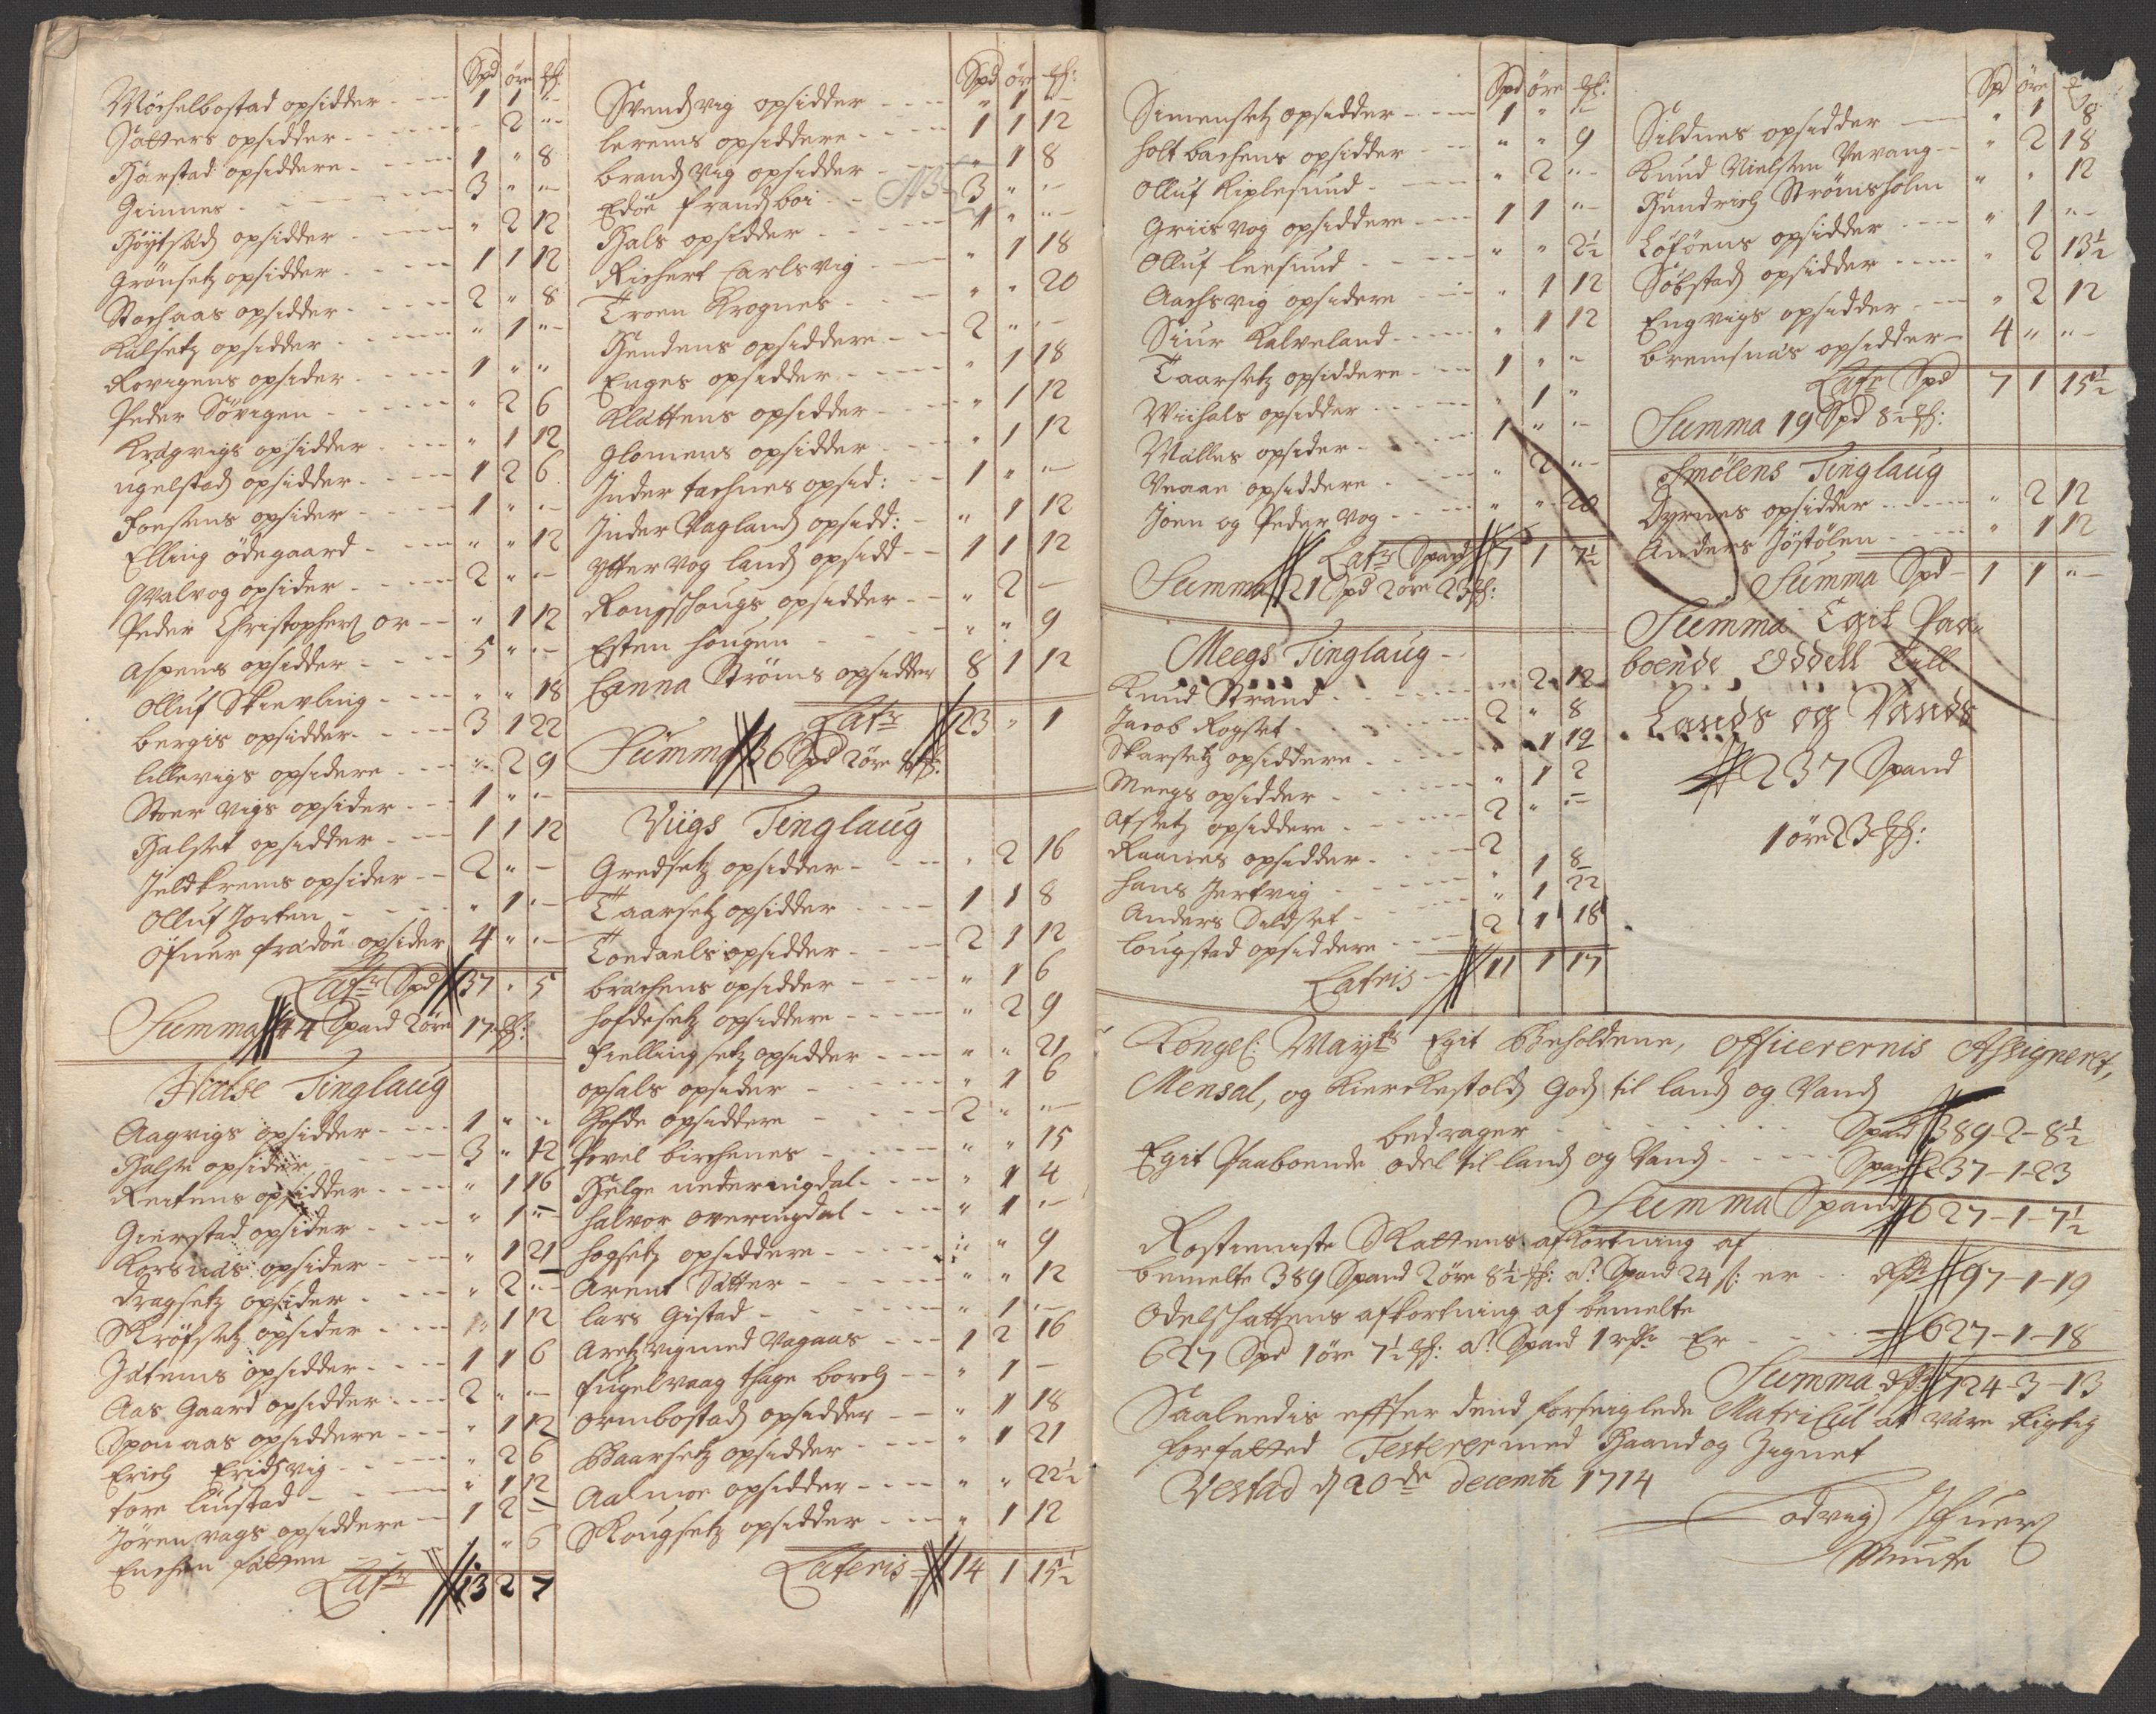 Spd öre
Möchelbostad opsidder - - - 1 1 "-
Sætters opsidder - - - - 2 "-
Harstad opsiddere - - - 1 " 8
Gimnes - - - 3 " "-
Höÿtsad opsidder - - - " 2 12
Grönsetz opsidder - - - 1 1 12
Stochaas opsidder - - - 2 " 8
Kulsetz opsidder - - - " 1 "-
Rovigens opsider - - - 1 " "
Peder Sövigen - - - " 2 6
Krogvigs opsidder - - - " 1 12
ugelstad opsidder - - - 1 2 6
Foesens opsider - - - 1 " "-
Elling ödegaard - - - " " 12
Qvalvog opsider - - - 2 " "-
Peder Christophers or - - " 1 12
Aspens opsidder - - - 5 " "-
Olluf Skievling - - - " " 18
bergis opsidder - - - 3 1 22
lillevigs opsidere - - - " 2 9
Stoer vigs opsider - - - 1 " "-
Halset opsidder - - - 1 1 12
Jeldkrems opsider - - 2 " -
Olluf Jorten - - - " 1 "-
Öfver fradöe opsider 4 " "-
Latr Spd 37 " 5
Summa 44 Spand 2 öre 17
Halse Tinglaug
Aagvigs opsidder - - - 1 " "
Halse opsider - - - 3 " 12
Reitens opsidder - - - " 1 16
Gierstad opsider - - - " 1 "-
Korsnæs opsider - - - " 1 21
Dragsetz opsider - - - " 2 "-
Kröfsetz opsider - - - " 1 12
Jætems opsidder - - - 1 1 6
Aas Gaard opsidder - - - 2 " "-
Sponaas opsiddere - - - " 1 12
Erich Eridsvig - - - " 2 6
tore liustad - - - " 1 12
Jören vags opsiddere - 1 2 -
Enchen sætten " 6
Latr 13 2 7
Spd öre
Svendvig opsidder - - - " 1 "-
lerems opsiddere - - - 1 1 12
brandvig opsidder - - - " 1 8
Edöe frandboi - - NB 3 " "-
Hals opsidder - - - 1 " "-
Richert Carlsvig - - - " 1 18
Troen Krognes - - - " " 20
Hendens opsiddere - - 2 " "-
Enges opsidder - - - " 1 18
Klættens opsidder - - - " 1 12
Glomens opsidder - - - " 1 12
Inder tachnes opsid: - - 1 " "-
Inder Vagland opsidd: - " 1 12
ÿtter vog land opsidd - - 1 1 12
Rongshougs opsidder - - " 2 -
Esten hougen - - - " " 9
Canna Ströms opsidder 8 1 12
Latr 23 " 1
Summa 36 Spd 2 öre 8
Viigs Tinglaug
Gredsetz opsidder - - - " 2 16
Taarsetz opsidder - - - 1 1 8
Toedaels opsidder - - - 2 1 12
brachens opsidder - - - " 1 6
hofdesetz opsiddere - - - " 2 9
Fiellingsetz opsidder - - - " " 21
opsals opsider - - - " 1 6
Hofde opsiddere - - - 2 " "-
Povel birchenes - - - " " 15
Helge nederingdal - - - " 1 4
halvor overingdal - - - " 1 "-
hogsetz opsiddere - - - " " 9
Arent Sætter - - - " " 12
lars Gistad - - - " 1 "-
Aretzvig med Vagaas - - - 1 2 16
fugelvaag thage borch - - " 1 -
ormbostad opsidder - - " 1 18
Baarsetz opsidder - - - " 1 21
Aalmoe opsidder - - - " " 22½
Skougsetz opsidder - - - " 1 12
Lateris - 14 1 15½
Spd öre
Simensetz opsidder - - - 1 " "-
holt bachens opsidder - - " " 9
Olluf Kiplesund - - - " 2 "-
Griis vog opsiddere - - - 1 1 "-
Olluf leesund - - - " " 2½
Aachsvig opsidere - - - " 1 12
Siur Kalveland - - - " 1 12
Taarsetz opsiddere - - - 1 " "
Wiihals opsidder - - - " 1 "
Walles opsider - - - 1 " "-
Veaae opsiddere - - - " 2 "-
Joen og Peder vog - - - " " 20
Latr Spand 7 1 7½
Summa 21 Spd 2 öre 23
Meegs Tinglaug -
Knud Strand - - - " 2 12
Jacob Rogset - - - 2 " 8
Skarsetz opsiddere - - - " 1 12
Meegs opsidder - - - " 1 2
Afsetz opsiddere - - - 2 " "-
Raanes opsidder - - - 2
hans Jertvig - - - " 1 8
Anders Sildset - - - " 1 22
lougstad opsiddere - - - 2 1 18
Latris - 11 1 17
Spd öre
Sildnes opsidder - " 1 8
Knud Nielsen Vevang - - " 2 18
Hendrich Strömsholm " " 12
Löföens opsidder - - - " 1 "-
Söbstad opsidder - - - " 2 13½
Engvigs opsidder - - - " 2 12
bremsnæs opsidder - 4 " "-
Latr Spd 7 1 15½
Summa 19 Spd 8½
Smölens Tinglaug
Dyrnes opsidder - - - " 2 12
Anders Jöstölen - - - " 1 12
Summa Spd - 1 1 "-
Summa Egit Paa-
boende Oddell Till
Lands og Vands
237 Spand
1 öre 23
Kongel: Mayts Egit Beholdene, Officerernis Assigneret,
Mensal, og Kierckestold God til land og Vand
bedrager - - - Spand 389-2-8½
Egit Paaboende odel til land og Vand - - - Spand 237-1-23
Summa Spand 627-1-7½
Rostieniste Skattens afkortning af
bemelte 389 Spand 2 öre 8½ a Spand 24 s: er - - 97-1-19
Odelskattens afkortning af bemelte
627 Spd 1 öre 7½ a Spand 1 rd Er - - - 627-1-18
Summa 724-3-13
Saaledis effter dend forseiglede Matricul at være Rigtig
forfatted Testerer med Haand og Zignet
Vestad d 20de Decemb 1714